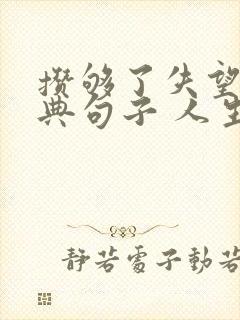 攒够了失望
典句子 人生
静若處子動若